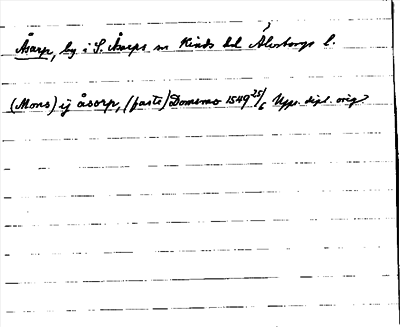 Åsarp, by i S. Åsarps sn Kinds hd Älvsborgs l.
(Mons) ij åsorp, (faste) Domsmo 1549 25/6 Upps. dipl. orig.